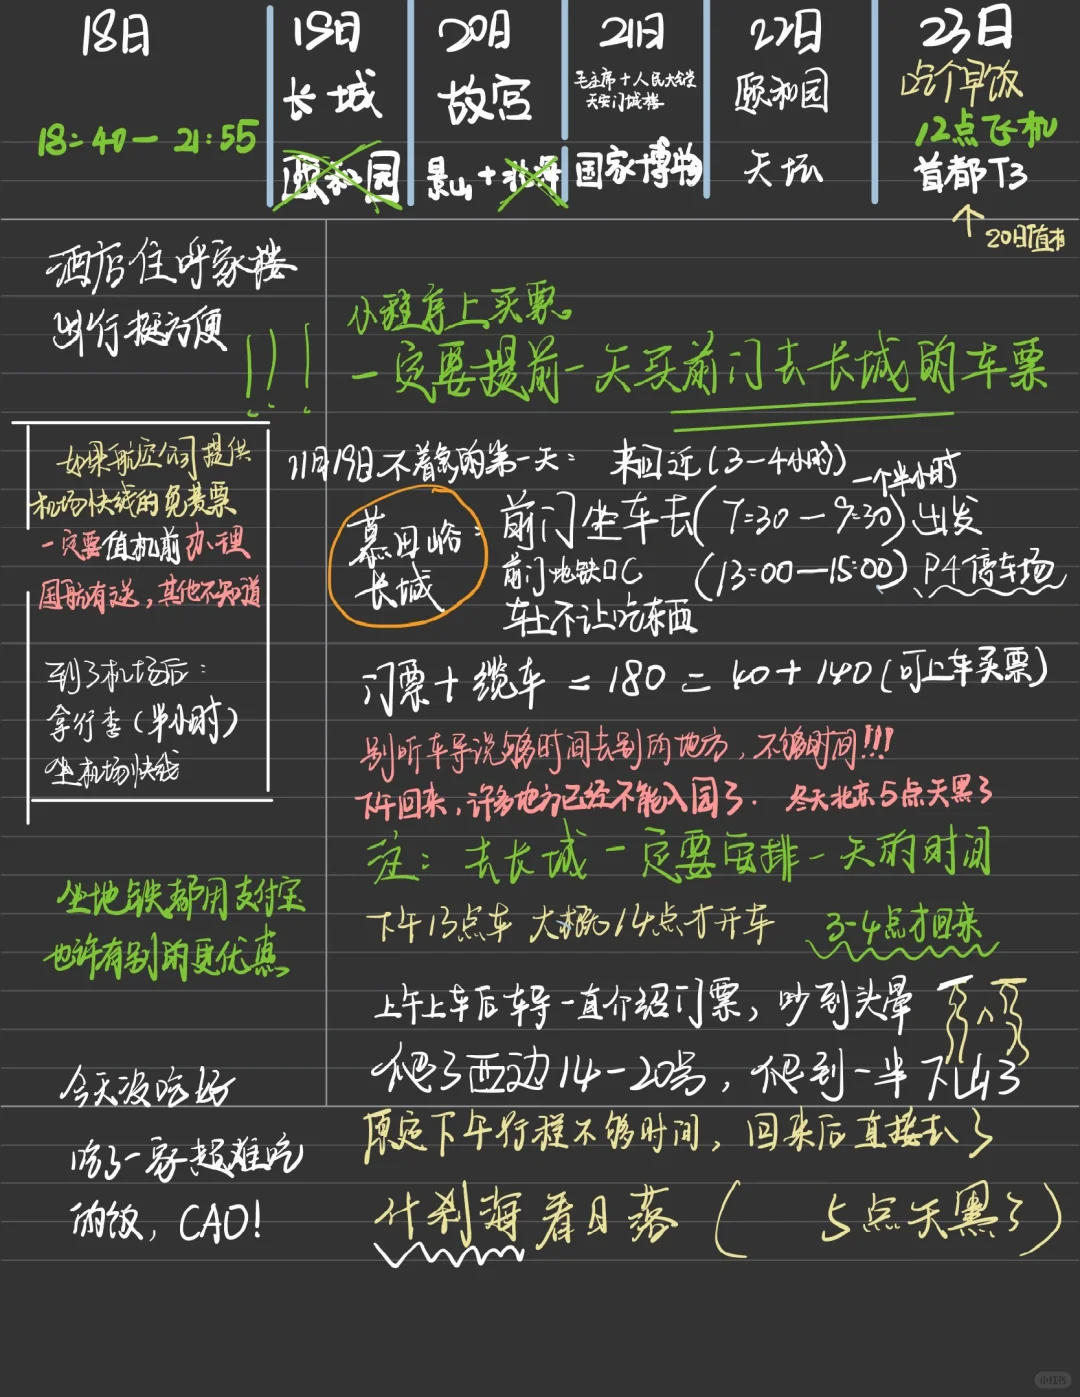 18日
18:40 — 21:55
19日
长城
颐和园
20日
故宫
景山+北海
21日
毛主席+人民大会堂
天安门城楼
国家博物
22日
颐和园
天坛
23日
吃个早饭
12点飞机
首都T3
20日值机
酒店住呼家楼
出行挺方便
!!!
小程序上买票。
一定要提前一天买前门去长城的车票
如果航空公司提供
机场快线的免费票
一定要值机前办理
国航有送，其他不知道
到了机场后：
拿行李(半小时)
坐机场快线
坐地铁都用支付宝
也许有别的更优惠
今天没吃好
吃了一家超难吃
的饭，CAO!
11月19日不着急的第一天： 来回近(3-4小时)
慕田峪
长城
一个半小时
前门坐车去(7:30—9:30)出发
前门地铁口C (13:00—15:00) P4停车场
车上不让吃东西
门票+缆车=180=40+140(可上车买票)
别听车导说够时间去别的地方，不够时间!!!
下午回来，许多地方已经不能入园了. 冬天北京5点天黑了
注：去长城一定要安排一天的时间
下午13点车 大概14点才开车 3-4点才回来
上午上车后车导一直介绍门票，吵到头晕
爬了西边14-20号，爬到一半下山了
原定下午行程不够时间，回来后直接去了
什刹海看日落( 5点天黑了)
小红书